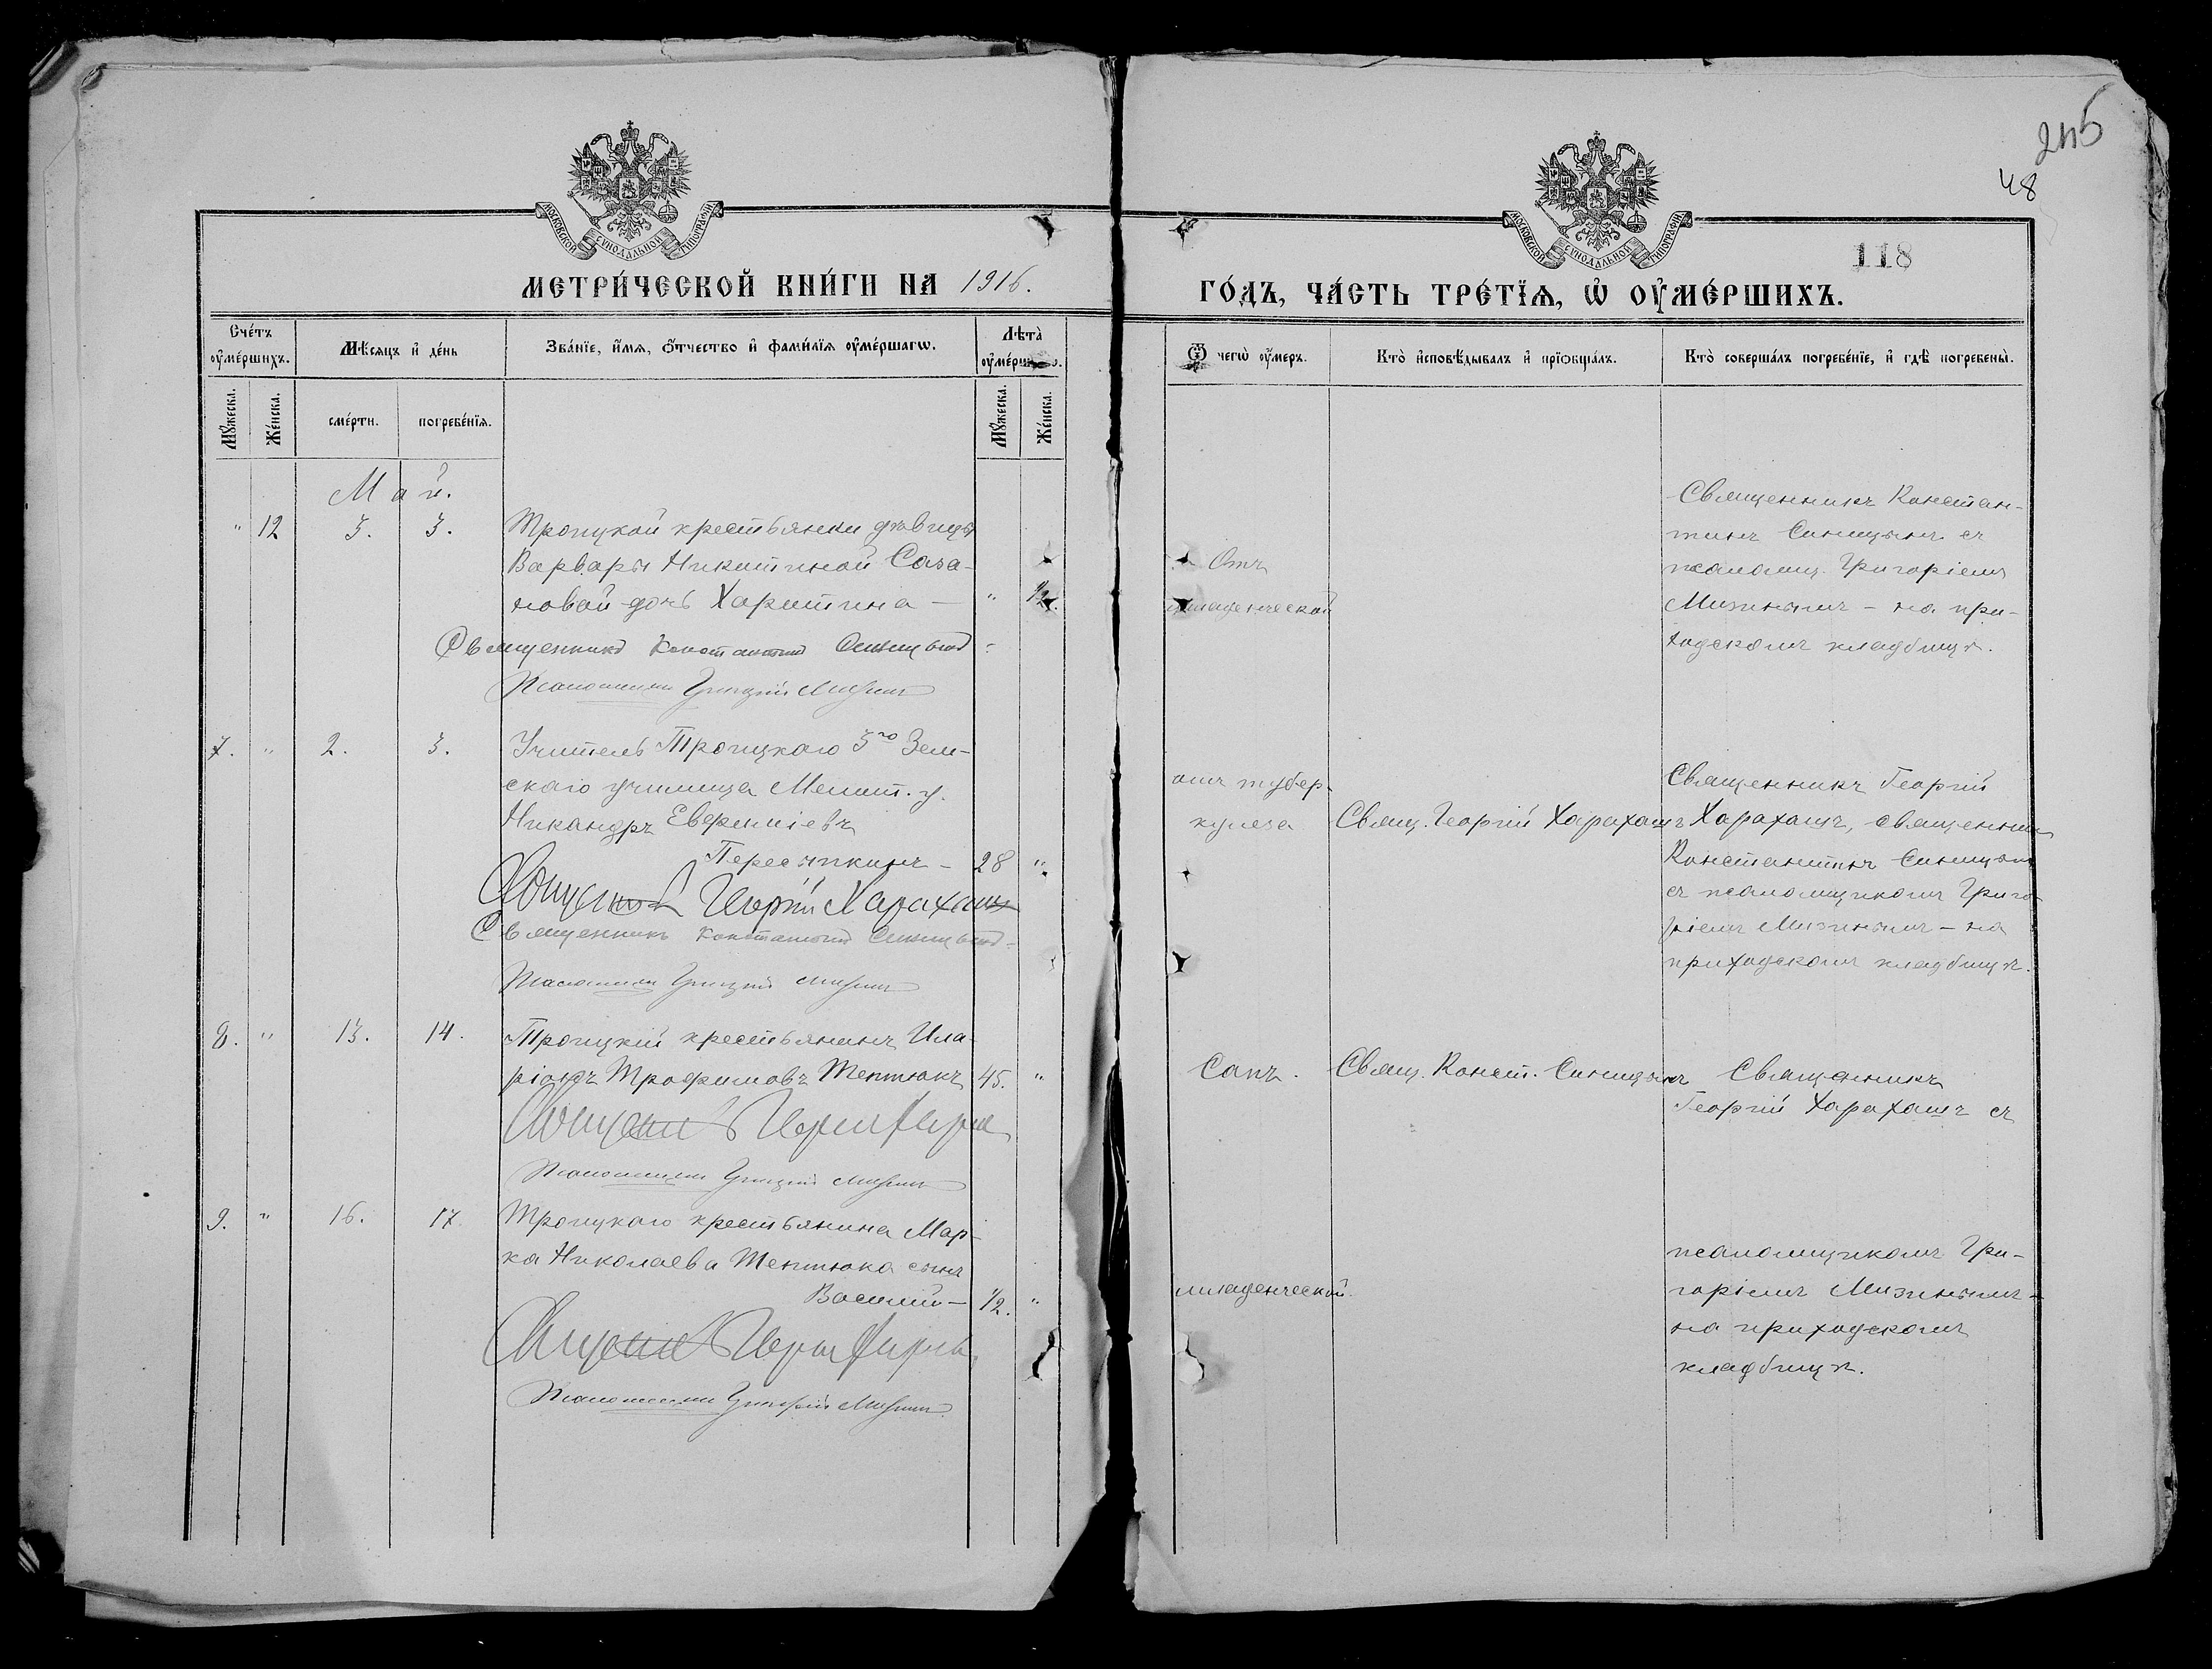 245
48
118
МОСКОВСКОЙ СѴНОДАЛЬНОЙ ТИПОГРАФІИ
МОСКОВСКОЙ СѴНОДАЛЬНОЙ ТИПОГРАФІИ
МЕТРИ́ЧЕСКОЙ КНИ́ГИ НА 1916.
ГО́ДЪ, ЧА́СТЬ ТРЕ́ТІѦ, Ѡ҆ ОУ҆МЕ́РШИХЪ.
Сче́тъ оу҆ме́ршихъ.
Мѣ́сѧцъ и҆ де́нь
Зва́нїе, и҆́мѧ, ѻ҆́тчество и҆ фами́лїѧ оу҆ме́ршагѡ.
Лѣта̀ оу҆ме́ршагѡ.
Ѿ чегѡ̀ оу҆́меръ.
Кто̀ и҆сповѣ́дывалъ и҆ прїѡбща́лъ.
Кто̀ соверша́лъ погребе́нїе, и҆ гдѣ̀ погребены̀.
Мꙋ́жеска.
Же́нска.
сме́рти.
погребе́нїѧ.
Мꙋ́жеска.
Же́нска.
Май.
" 12 3. 3. Троицкой крестьянки дѣвицы
Варвары Никитиной Саза-
новой дочь Харитина — " 1/2.
Священникъ Константинъ Синицынъ
Псаломщикъ Григорій Мизинъ
Отъ
младенческой
Священникъ Констан-
тинъ Синицынъ съ
псаломщ. Григоріемъ
Мизинымъ – на при-
ходскомъ кладбищѣ.
7. " 2. 3. Учитель Троицкаго 3го Зем-
скаго училища Мелит. у.
Никандръ Евфиміевъ
Пересыпкинъ – 28 "
Священникъ Георгій Харахашъ
Священникъ Константинъ Синицынъ
Псаломщикъ Григорій Мизинъ
отъ тубер-
кулеза
Свящ. Георгій Харахашъ
Священникъ Георгій
Харахашъ, священникъ
Константинъ Синицынъ
съ псаломщикомъ Григо-
ріемъ Мизинымъ – на
приходскомъ кладбищѣ.
8. " 13. 14. Троицкій крестьянинъ Ила-
ріонъ Трофимовъ Тептюкъ 45. "
Священникъ Георгій
Псаломщикъ Григорій Мизинъ
Сапъ.
Свящ. Конст. Синицынъ
Священникъ
Георгій Харахашъ съ
9. " 16. 17. Троицкаго крестьянина Мар-
ка Николаева Тептюка сынъ
Василій – 1/2. "
Священникъ Георгій
Псаломщикъ Григорій Мизинъ
младенческой.
псаломщикомъ Гри-
горіемъ Мизинымъ –
на приходскомъ
кладбищѣ.